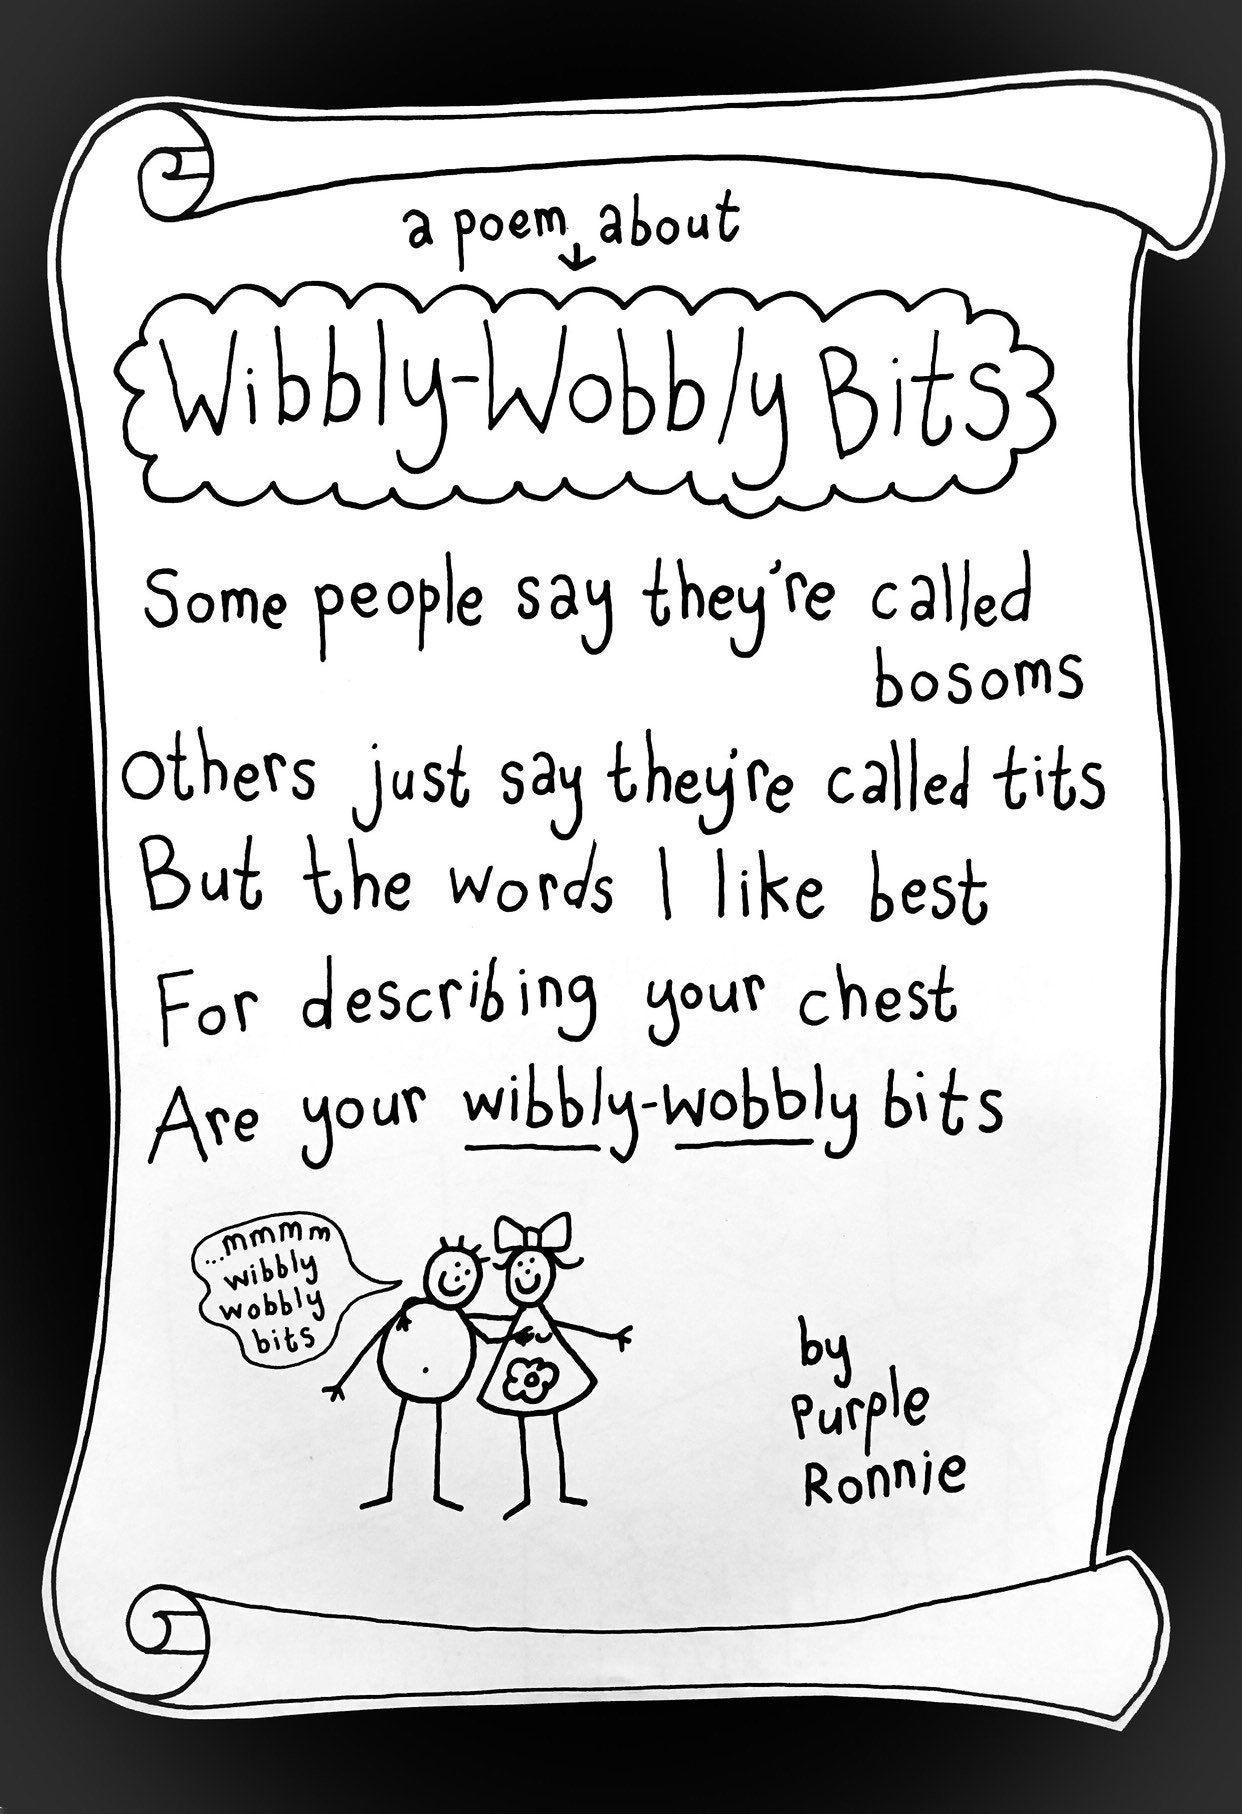 a poem about
Wibbly-Wobbly Bits
Some people say they're called
bosoms
Others just say they're called tits
But the words I like best
For describing your chest
Are your wibbly-wobbly bits
...mmmm
wibbly
wobbly
bits
by
Purple
Ronnie